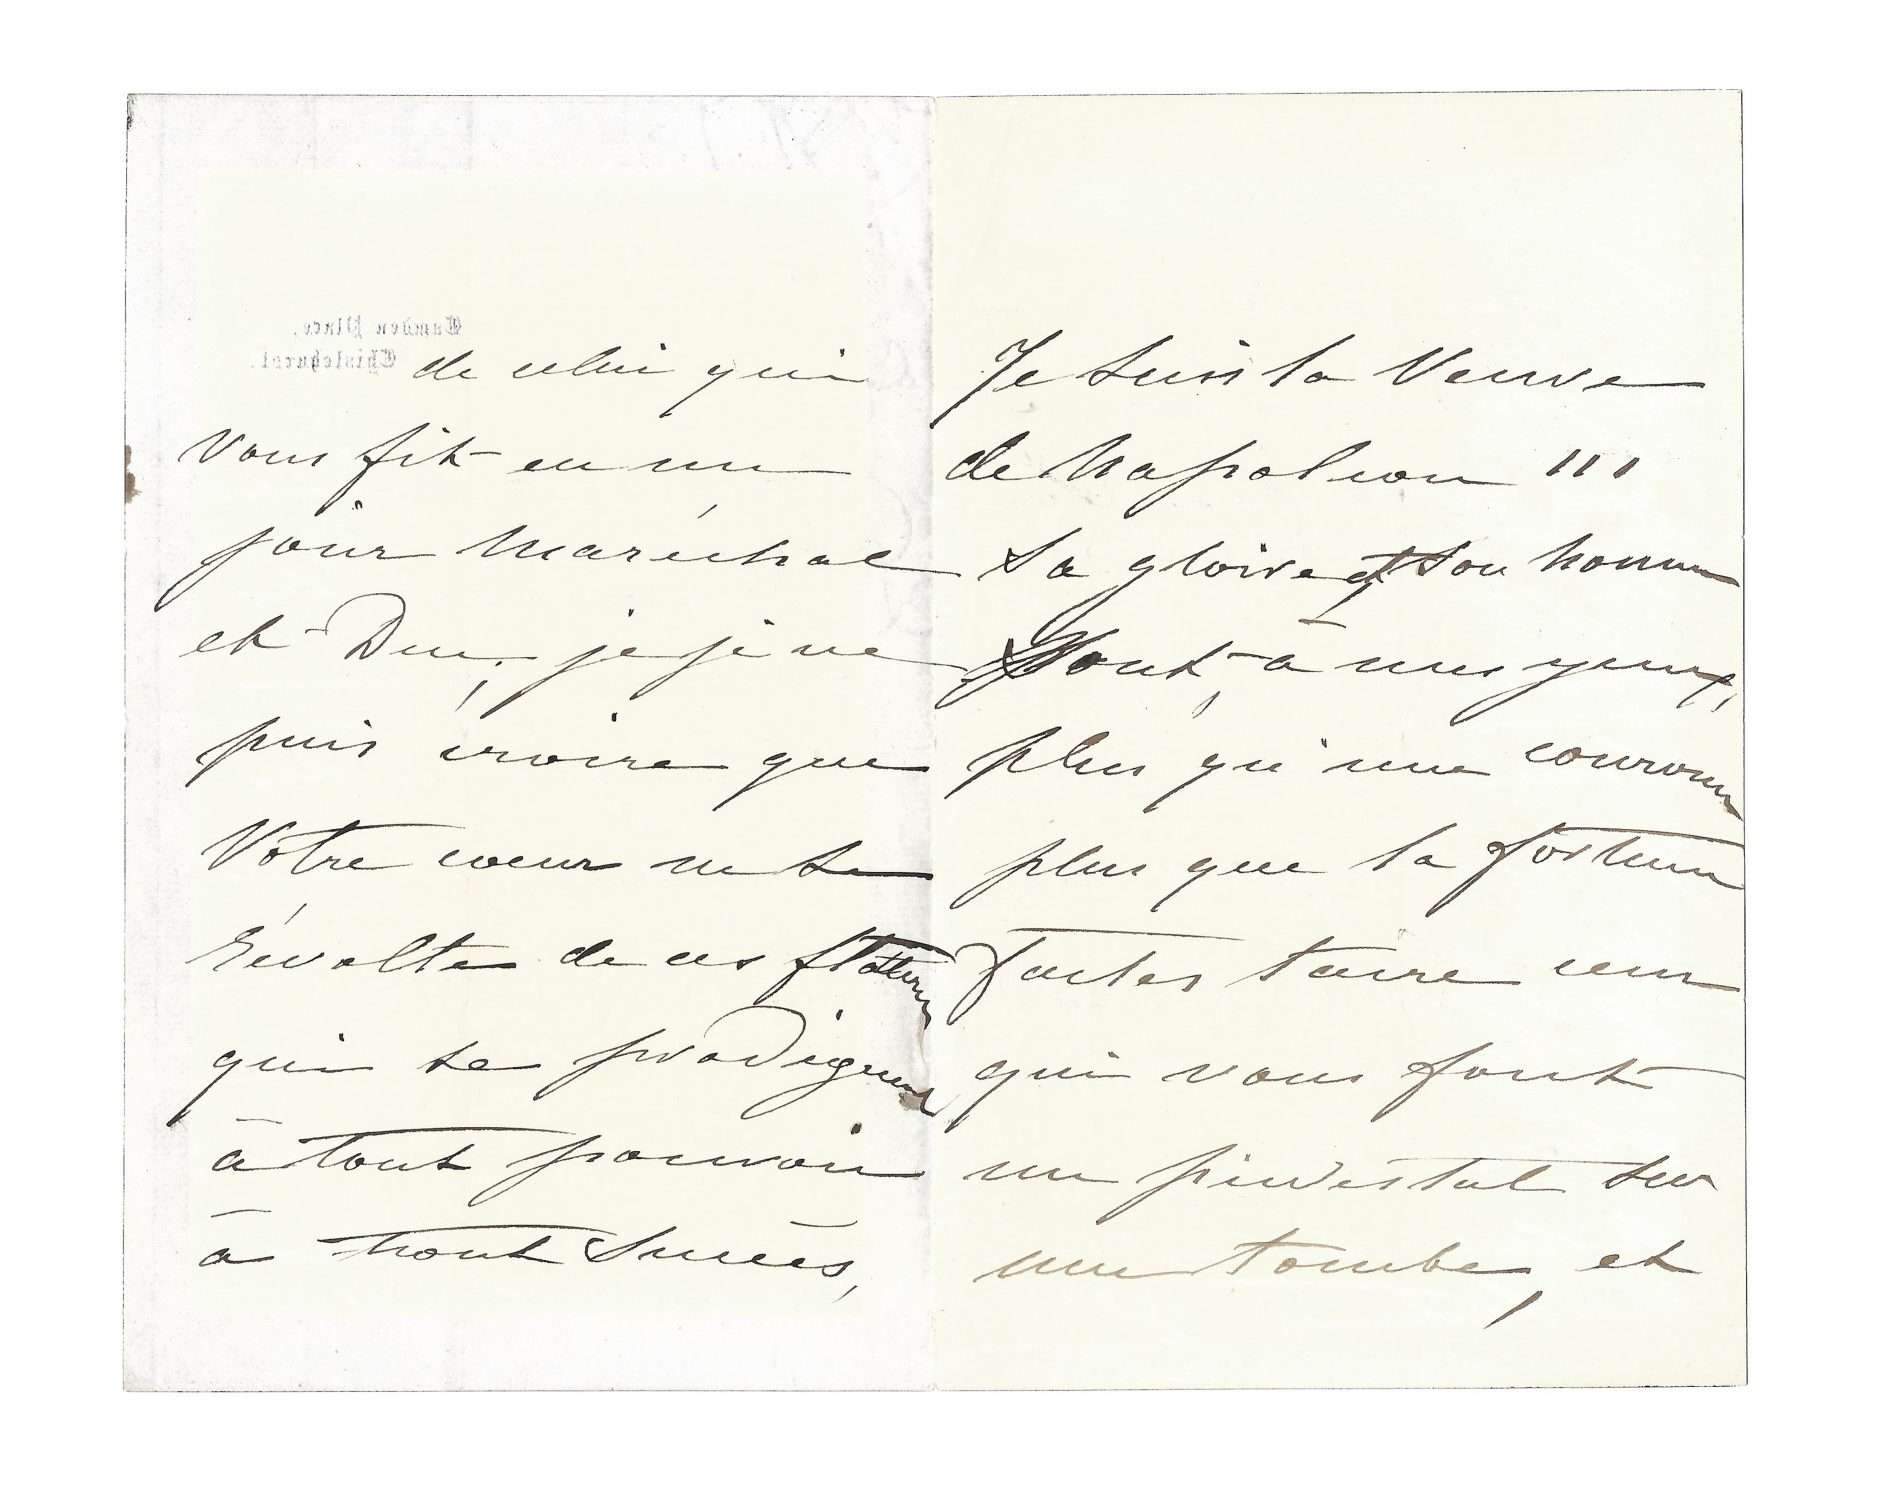 Camden Place,
Chislehurst.
de celui qui
vous fit en un
jour Maréchal
et Duc, je je ne
puis croire que
Votre cœur ne se
révolte de ces flatteurs
qui se prodiguent
à tout pouvoir
à tout succès,
Je suis la Veuve
de Napoléon III
Sa gloire et son honneur
sont à mes yeux,
plus qu'une couronne
plus que la fortune
faites taire ceux
qui vous font
un piédestal sur
une tombe, et